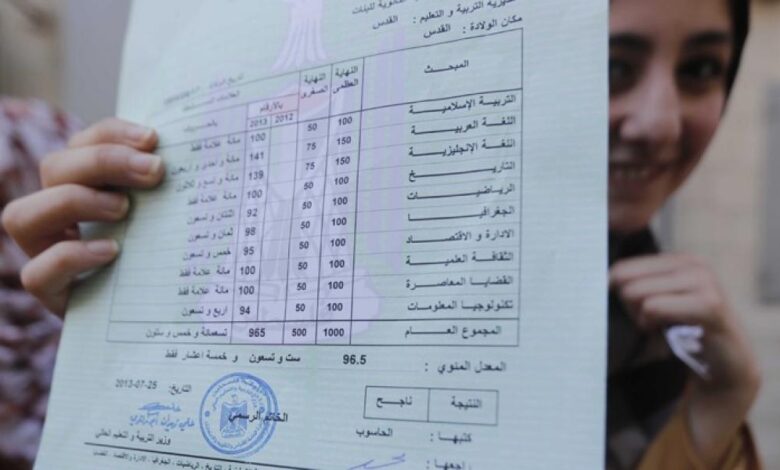 مديرية التربية و التعليم : القدس
مكان الولادة : القدس
المبحث النهاية العظمى النهاية الصغرى بالأرقام
2012 2013
التربية الإسلامية 100 50 100 مائة علامة فقط
اللغة العربية 150 75 141 مائة و احدى و اربعون
اللغة الإنجليزية 150 75 139 مائة و تسع و ثلاثون
التاريخ 100 50 100 مائة علامة فقط
الرياضيات 100 50 92 اثنتان و تسعون
الجغرافيا 100 50 98 ثمان و تسعون
الادارة و الاقتصاد 100 50 95 خمس و تسعون
الثقافة العلمية 100 50 100 مائة علامة فقط
القضايا المعاصرة 100 50 100 مائة علامة فقط
تكنولوجيا المعلومات 100 50 94 اربع و تسعون
المجموع العام 1000 500 965 تسعمائة و خمس و ستون
المعدل المئوي : 96.5 ست و تسعون و خمسة اعشار فقط
النتيجة ناجح
التاريخ: 25-07-2013
كتبها : الحاسوب
الخاتم الرسمي
وزير التربية و التعليم العالي
راجعها :